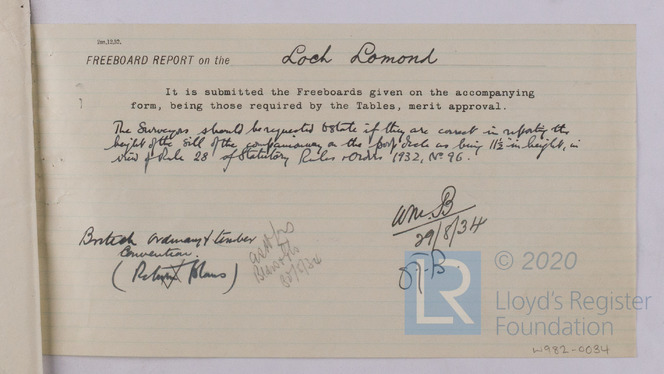 2m,1930.
FREEBOARD REPORT on the Loch Lomond
It is submitted the Freeboards given on the accompanying
form, being those required by the Tables, merit approval.
The Surveyors should be requested to state if they are correct in reporting the
height of the sill of the companionway on the poop deck as being 11½ in height, in
view of Rule 28 of Statutory Rules & Orders 1932, No 96.
Wm. B
29/8/34
British ordinary & timber
Convention.
(Return Plans)
LR
© 2020
Lloyd's Register
Foundation
W982-0034